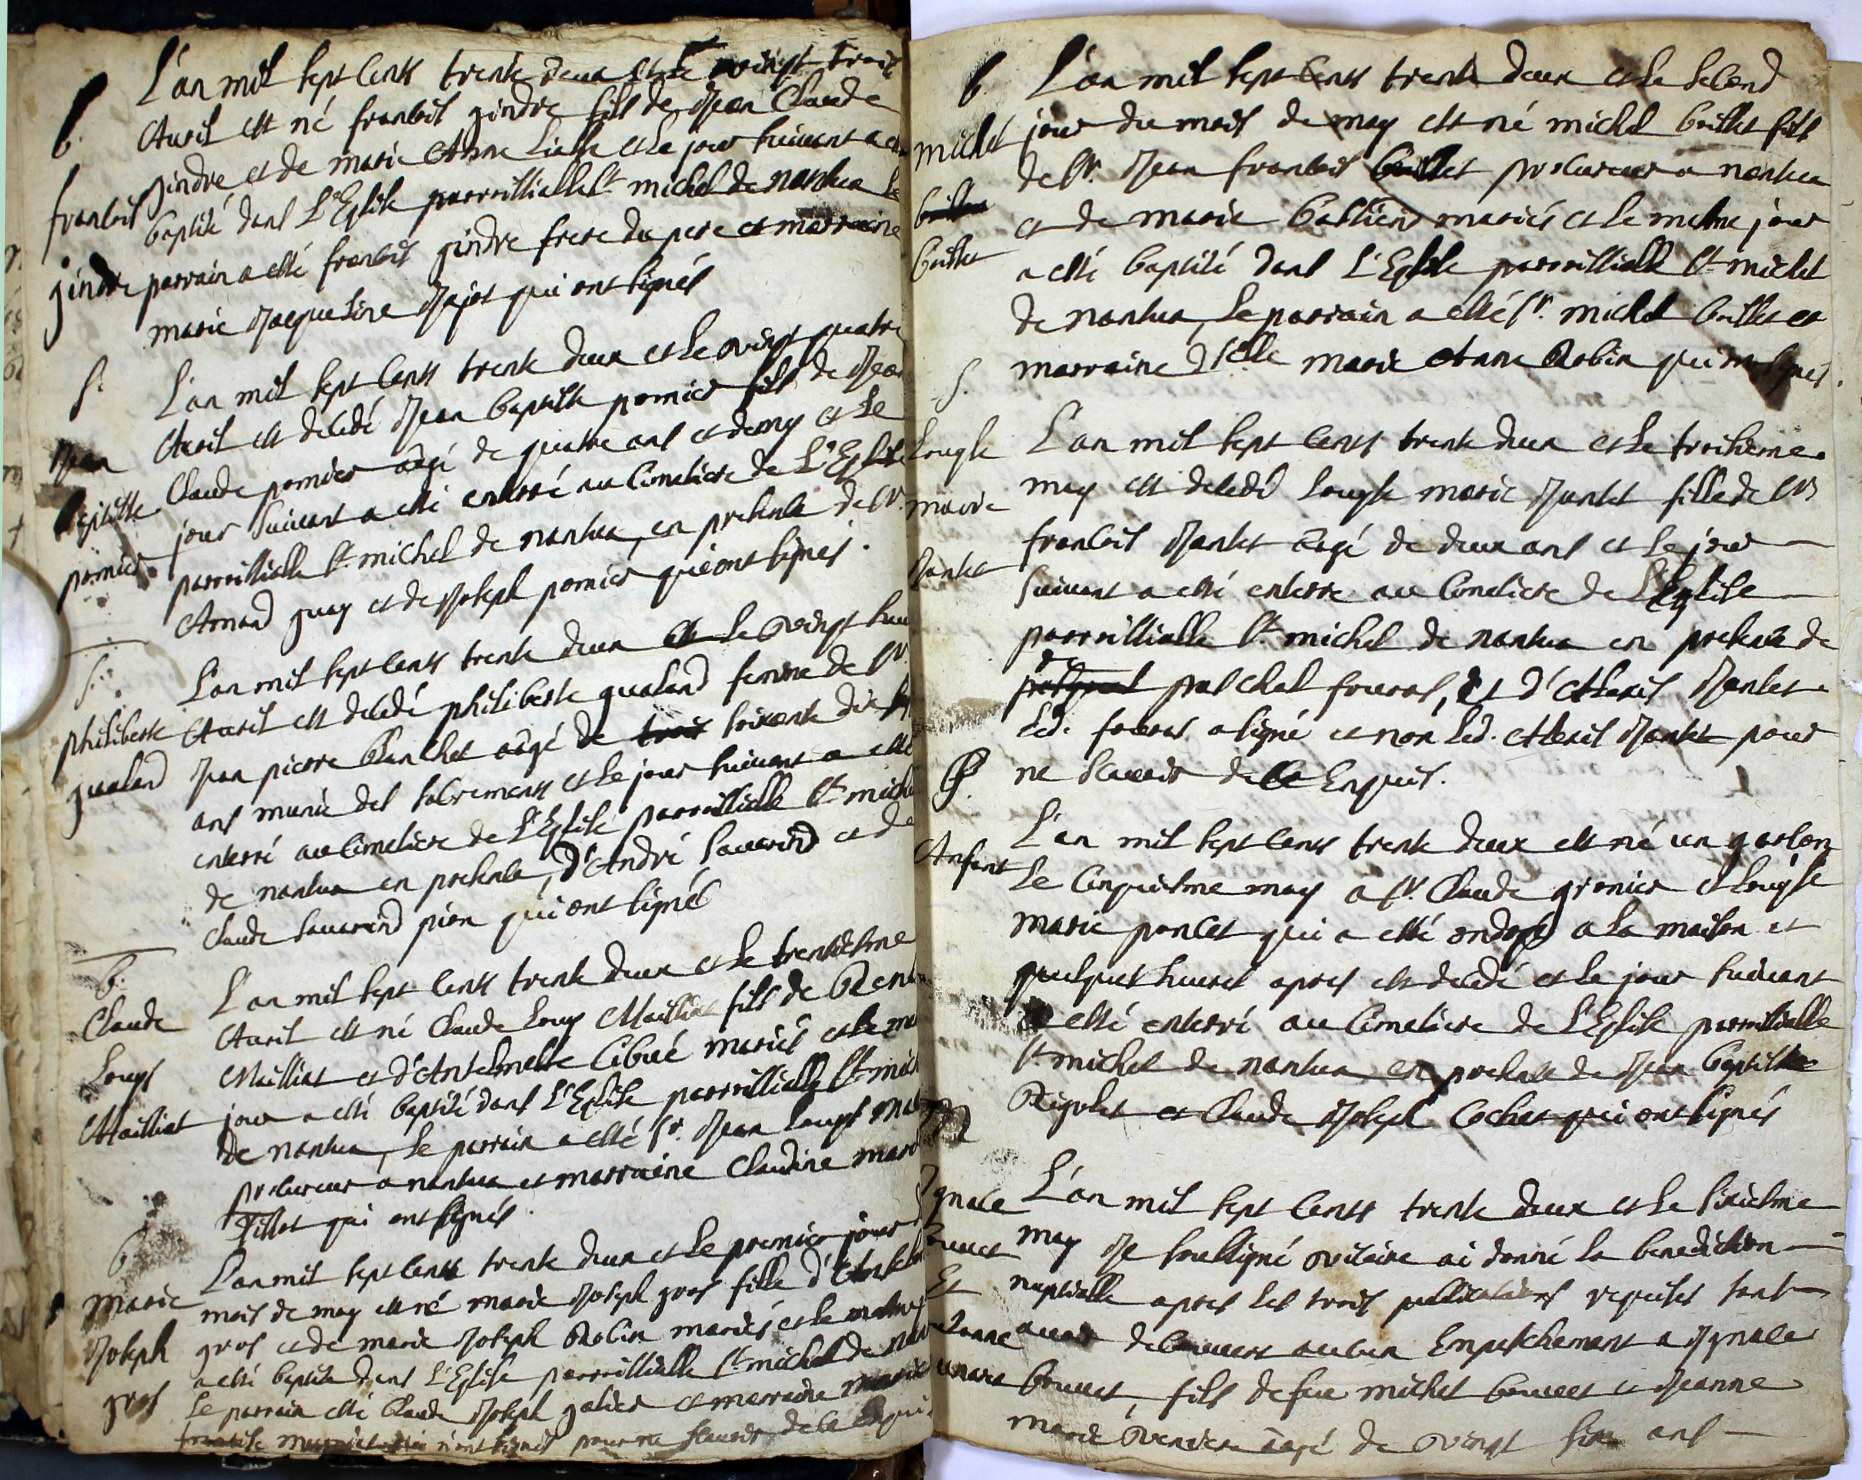 b.
francois
gindre
L'an mil sept cents trente deux et le vingt trois
Avril est né francois gindre fils de Jean Claude
gindre et de marie Anne et le jour suivant a
baptisé dans L'Eglise parroissialle St michel de nantua Le
parrain a esté francois gindre frere du pere et marraine
marie Jacqueline Jajot qui ont signés
S.
Jean
baptiste
pernier
L'an mil sept cents trente deux et le vingt quatre
Avril est decedé Jean baptiste pernier fils de Jean
Claude pernier aagé de quatre ans et demy et le
jour suivant a esté enterré au Cimetiere de L'Eglise
parroissialle St michel de nantua, en presence de Sr.
Amand guy et de Joseph pernier qui ont signés.
S.
philiberte
gualand
L'an mil sept cents trente deux et le vingt huit
Avril est decedé philiberte gualand femme de Sr.
Jean pierre Planchet aagé de soixante dix
ans munie des sacrements et le jour suivant a esté
enterré au Cimetiere de L'Eglise parroissialle St michel
de nantua en presence, d'André sauverd et de
Claude sauverd pion qui ont signés
b.
Claude
Louys
Mailliat
L'an mil sept cents trente deux et le trentiesme
Avril est né Claude Louys Mailliat fils de René
Mailliat et d'Anthelmette Cibué mariés et le
jour a esté baptisé dans L'Eglise parroissialle St
de nantua, Le parrain a esté Sr. Jean Louys
procureur a nantua et marraine Claudine
Tillet qui ont signés.
b
marie
Joseph
gros
L'an mil sept cents trente deux et le premier jour
mois de may est né marie Joseph gros fille d'Anthelme
gros et de marie Joseph Robin mariés et le mesme
a esté baptisé dans L'Eglise parroissialle St michel de
Le parrain esté Claude Joseph galier et marraine marie
n'ont signés pour ne scavoir de ce Enquis
b.
michel
buillet
L'an mil sept cents trente deux et le second
jour du mois de may est né michel buillet fils
de Sr. Jean francois buillet procureur a nantua
et de marie bastien mariés et le mesme jour
a esté baptisé dans L'Eglise parroissialle St michel
de nantua, Le parrain a esté Sr. michel buillet et
marraine Dlle. marie Anne Robin qui ont signés.
S.
Louyse
marie
Jantet
L'an mil sept cents trente deux et Le troisieme
may est decedé Louyse marie Jantet fille de Sr
francois Jantet aagé de deux ans et le jour
suivant a esté enterré au Cimetiere de L'Eglise
parroissialle St michel de nantua en presence de
de paschal fouras, et d'Alexis Jantet
Led. fouras a signé et non Led. Alexis Jantet pour
ne scavoir de ce Enquis.
Anfant
L'an mil sept cents trente deux est né un garson
Le Cinquiesme may a Sr. Claude grenier et Louyse
marie poncet qui a esté ondoyé a la maison et
quelques heures apres est decedé et le jour suivant
a esté enterré au Cimetiere de L'Eglise parroissialle
St michel de nantua en presence de Jean baptiste
Rigolet et Claude Joseph Cochet qui ont signés
Ignace
bouvet
Et
Jeanne
L'an mil sept cents trente deux et le sixiesme
may Je soussigné vicaire ai donné la benediction
nuptialle apres les trois publications requises sans
avoir decouvert aucun Empeschement a Ignace
bouvet, fils de feu michel bouvet et Jeanne
marie vernier aagé de vingt six ans